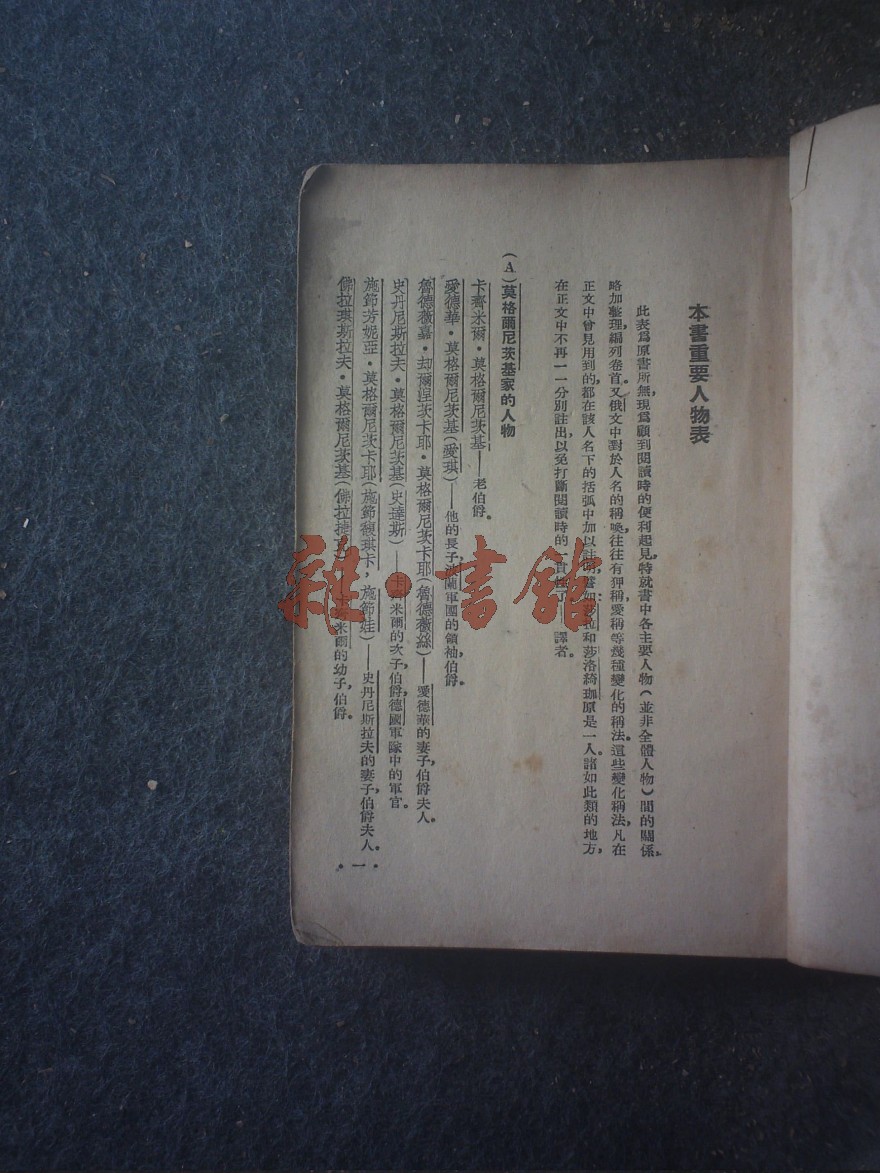 本書重要人物表
此表爲原書所無,現爲顧到閱讀時的便利起見,特就書中各主要人物(並非全體人物)間的關係,
略加整理,編列卷首。又俄文中對於人名的稱喚,往往有狎稱,愛稱等幾種變化的稱法。這些變化稱法,凡在
正文中曾見用到的,都在該人名下的括弧中加以註明,譬如莎拉和莎洛綺珈原是一人。諸如此類的地方,
在正文中不再一一分別註出,以免打斷閱讀時的一貫性了——譯者。
(A)莫格爾尼茨基家的人物
卡齊米爾·莫格爾尼茨基——老伯爵。
愛德華·莫格爾尼茨基(愛琪)——他的長子,波蘭軍團的領袖,伯爵。
魯德薇嘉·却爾涅茨卡耶·莫格爾尼茨卡耶(魯德薇絲)——愛德華的妻子,伯爵夫人。
史丹尼斯拉夫·莫格爾尼茨基(史達斯)——卡 米爾的次子,伯爵,德國軍隊中的軍官。
施節芳妮亞·莫格爾尼茨卡耶(施節馥琪卡,施節娃)——史丹尼斯拉夫的妻子,伯爵夫人。
佛拉琪斯拉夫·莫格爾尼茨基(佛拉 米爾的幼子,伯爵。
·一·
雜·書館